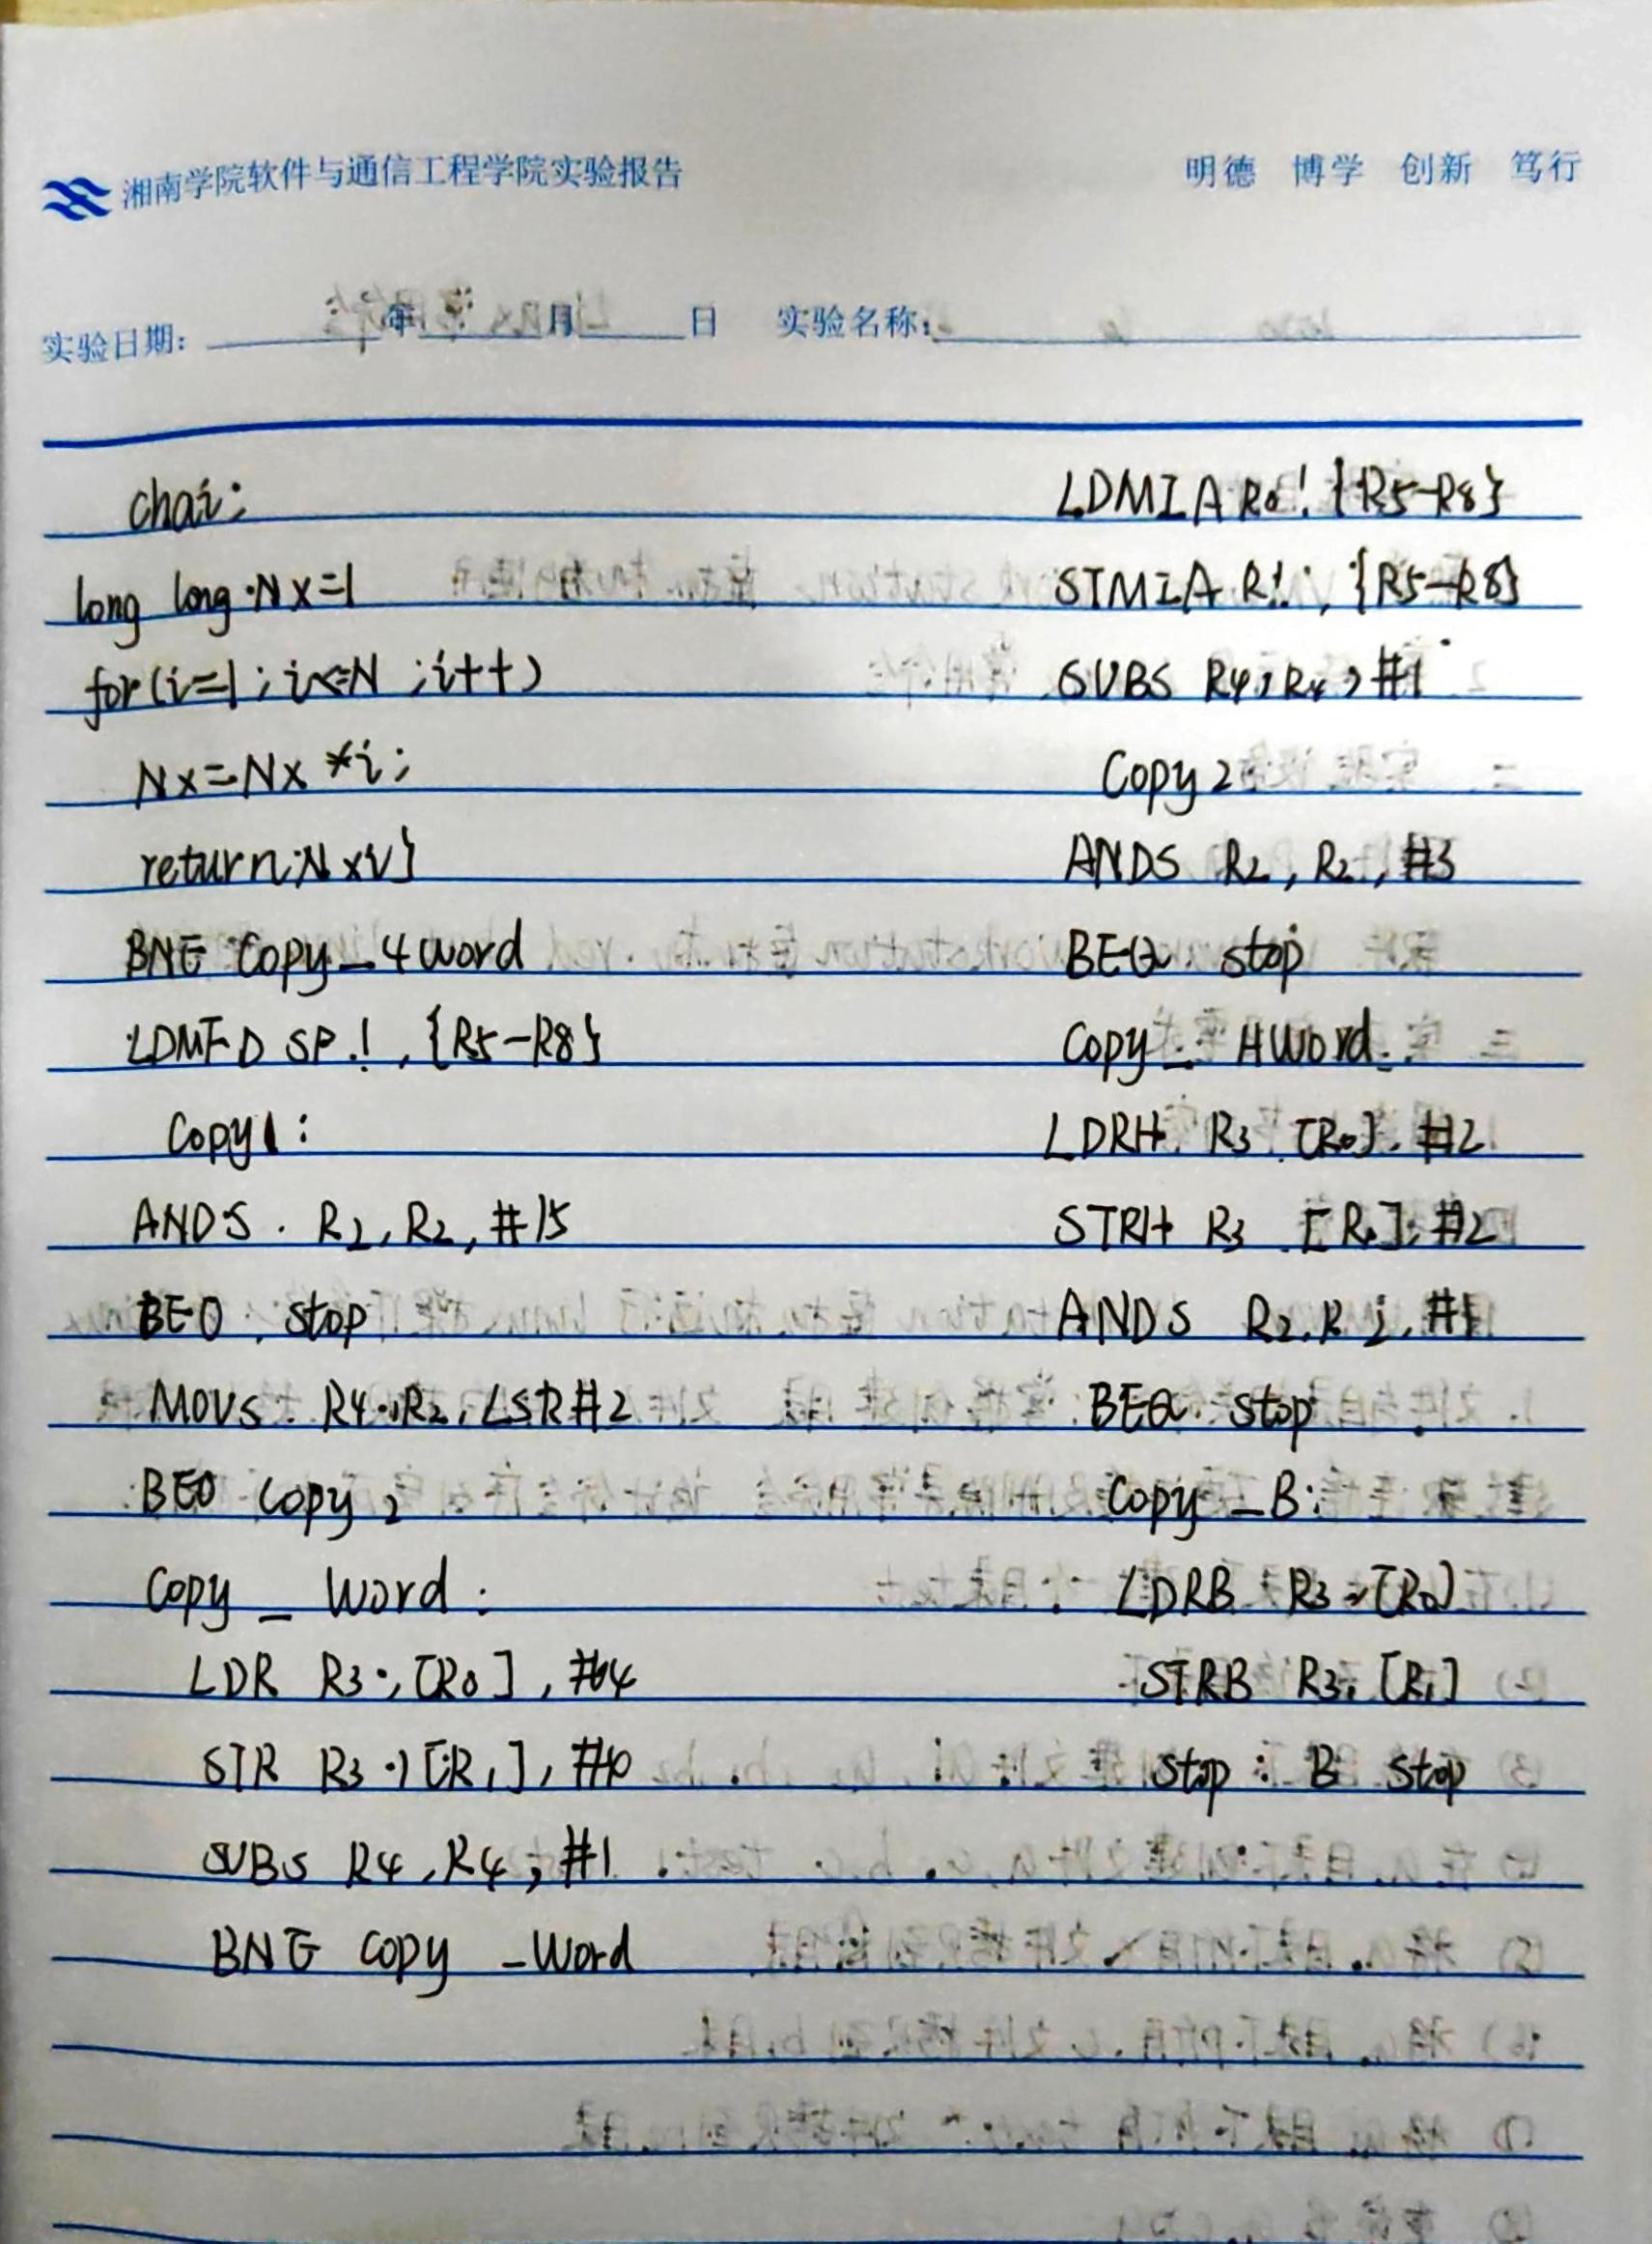 湘南学院软件与通信工程学院实验报告
明德 博学 创新 笃行
实验日期: 年 月 日 实验名称:
chai;
long long Nx=1
for(i=1;i<=N;i++)
Nx=Nx*i;
return
BNE Copy_4word
LDMFD SP!,{R5-R8}
Copy1:
ANDS R2,R2,#15
BEQ stop
MOVS R4,R2,LSR#2
BEQ copy2
Copy_Word:
LDR R3,[R0],#4
STR R3,[R1],
SUBS R4,R4,#1
BNE copy_Word
LDMIA R0!{R5-R8}
STMIA R!,{R5-R8}
SUBS R4,R4,#1
Copy2
ANDS R2,R2,#3
BEQ stop
Copy_HWord:
LDRH R3,[R0],#2
STRH R3,[R1],#2
ANDS R2,R2,#1
BEQ stop
Copy_B:
LDRB R3,[R0]
STRB R3,[R1]
stop: B stop